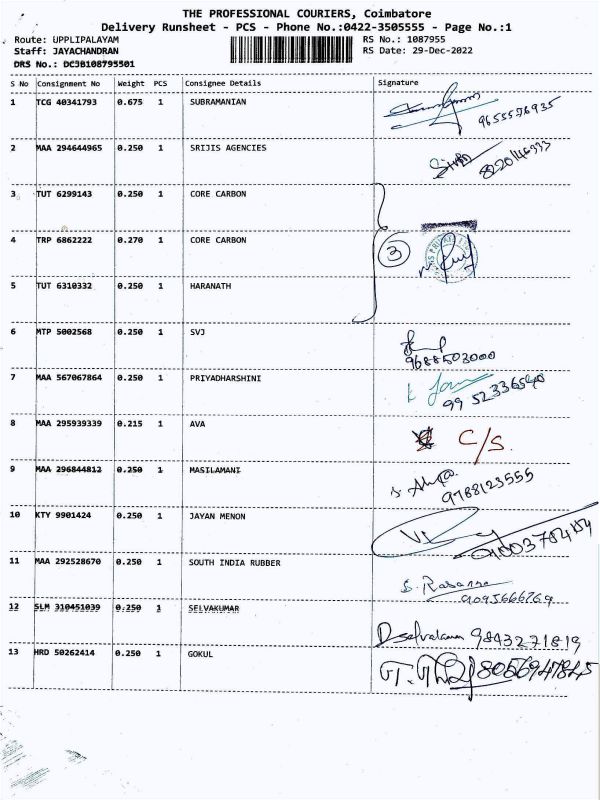 THE PROFESSIONAL COURIERS, Coimbatore
Delivery Runsheet - PCS - Phone No.:0422-3505555 - Page No.:1
Route: UPPLIPALAYAM RS No.: 1087955
Staff: JAYACHANDRAN RS Date: 29-Dec-2022
DRS No.: DC3B108795501
S No Consignment No Weight PCS Consignee Details Signature
1 TCG 40341793 0.675 1 SUBRAMANIAN
9655576935
2 MAA 294644965 0.250 1 SRIJIS AGENCIES
8220146333
3 TUT 6299143 0.250 1 CORE CARBON
4 TRP 6862222 0.270 1 CORE CARBON
3
5 TUT 6310332 0.250 1 HARANATH
6 MTP 5002568 0.250 1 SVJ
9688503000
7 MAA 567067864 0.250 1 PRIYADHARSHINI
99 52336540
8 MAA 295939339 0.215 1 AVA C/S.
9 MAA 296844812 0.250 1 MASILAMANI
9788123555
10 KTY 9901424 0.250 1 JAYAN MENON
11 MAA 292528670 0.250 1 SOUTH INDIA RUBBER
9095666769
12 SLM 310451039 0.250 1 SELVAKUMAR
D selvakumar 9843271819
13 HRD 50262414 0.250 1 GOKUL
8056947845